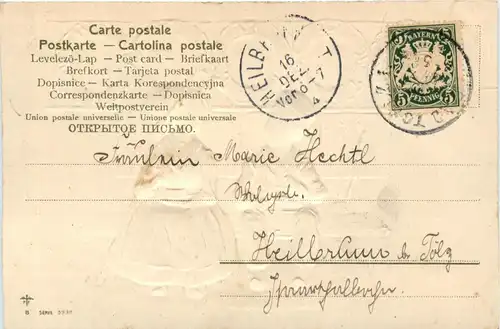 Carte postale
Postkarte — Cartolina postale
Levelező-Lap — Post card — Briefkaart
Brefkort — Tarjeta postal
Dopisnice — Karta Korespondencyjna
Correspondenzkarte — Dopisnica
Weltpostverein
Union postale universelle — Unione postale universale
ОТКРЫТОЕ ПИСЬМО.
16
DEZ
BAYERN
5 PFENNIG 5
Fräulein Marie Hechtl
Heilbrunn b. Tölz